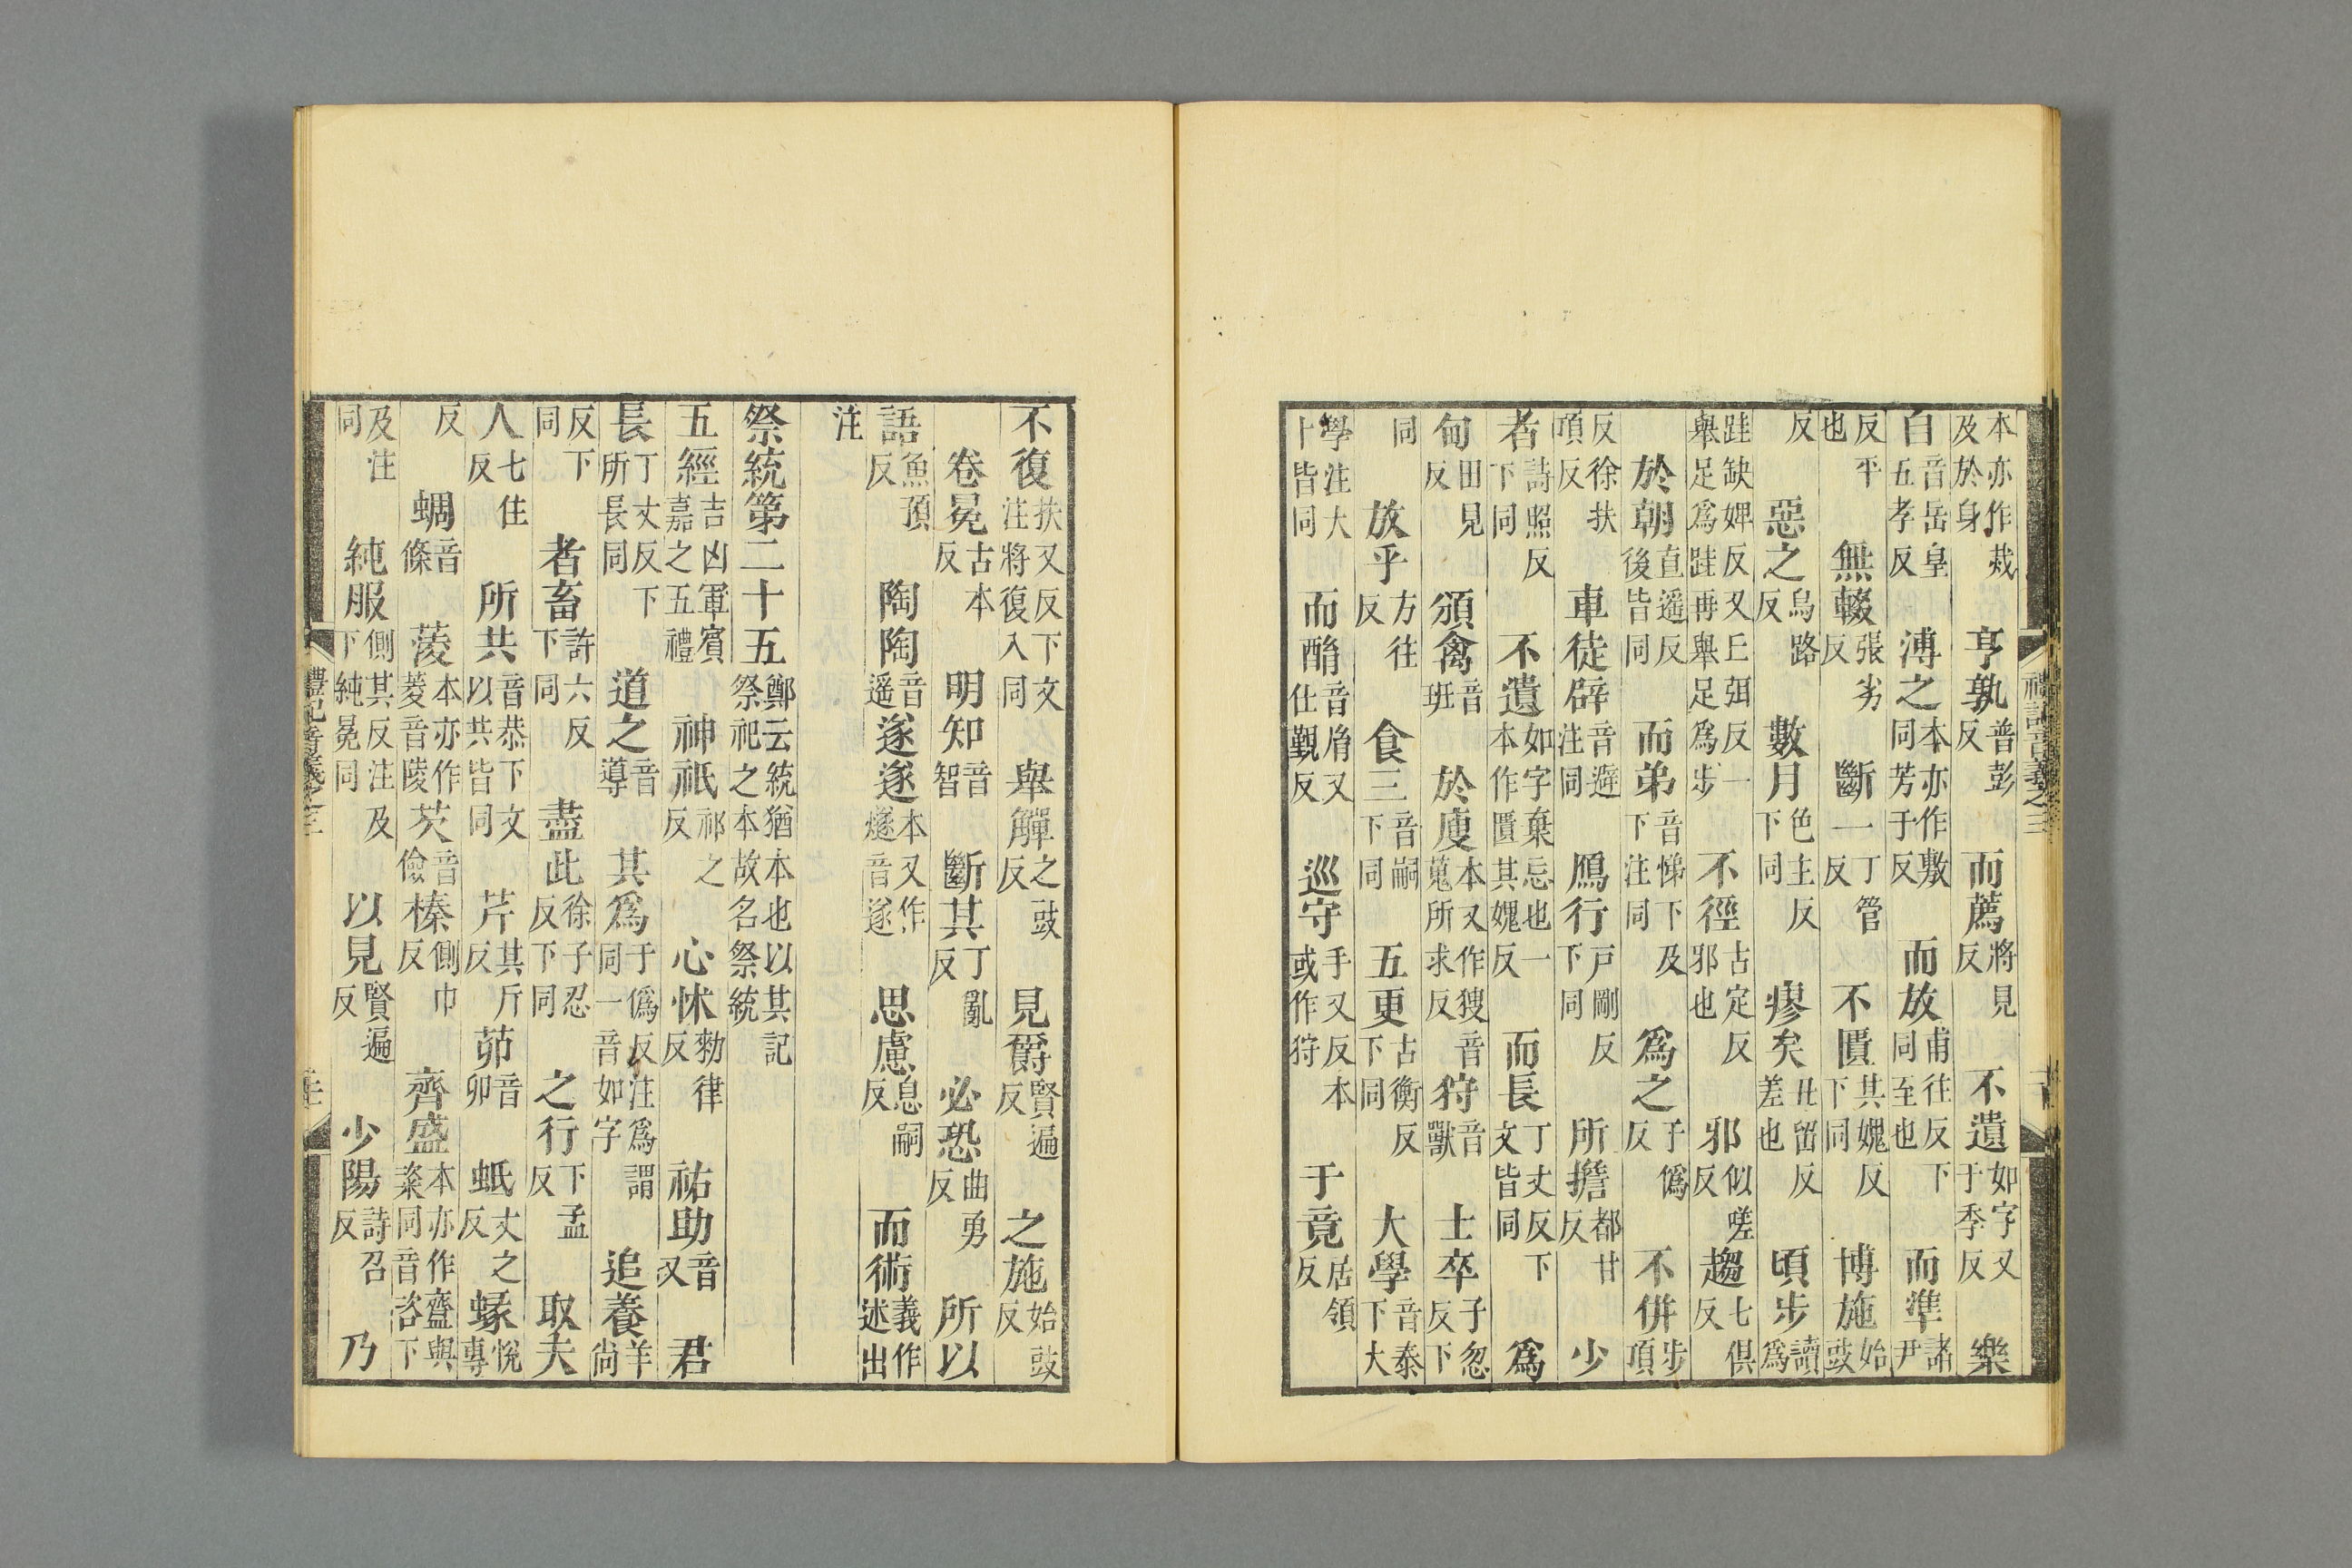 本亦作烖及於身亨孰普彭反而薦將見反不遺如字又于季反樂
自音岳皇五孝反溥之本亦作敷同芳于反而放甫往反下同至也而準諸尹
反平也無輟張劣反斷一丁管反不匱其媿反下同博施始豉
反惡之烏路反數月色主反下同瘳矣丑留反差也頃步讀爲
跬缺婢反又丘弭反一舉足爲跬再舉足爲步不徑古定反邪也邪似嗟反趨七俱反
於朝直遥反後皆同而弟音悌下及下注同爲之于僞反不併步項
反徐扶項反車徒辟音避注同鴈行戶剛反下同所擔都甘反少
者詩照反下同不遺如字棄忘也一本作匱其媿反而長丁丈反下文皆同爲
甸田見反頒禽音班於廋本又作獀音蒐所求反狩音獸士卒子忽反下
同放乎方往反食三音嗣下同五更古衡反下同大學音泰下大
學注大卜皆同而酳音胤又仕覲反巡守手又反本或作狩于竟居領反
不復扶又反下文注將復入同舉觶之豉反見爵賢遍反之施始豉反
卷冕古本反明知音智斷其丁亂反必恐曲勇反所以
語魚預反陶陶音遥遂遂本又作燧音遂思慮息嗣反而術義作述出
注
祭統第二十五鄭云統猶本也以其記祭祀之本故名祭統
五經吉凶軍賓嘉之五禮神祇祁之反心怵勑律反祐助音又君
長丁丈反下所長同道之音導其爲于僞反注爲謂同一音如字追養羊尚
反下同者畜許六反下同盡此徐子忍反下同之行下孟反取夫
人七住反所共音恭下文以共皆同芹其斤反茆音卯蚳丈之反蝝悅專
反蜩音條蔆本亦作菱音陵芡音儉榛側巾反齊盛本亦作齍與粢同音咨下
及注同純服側其反注及下純冕同以見賢遍反少陽詩召反乃
禮記音義之三